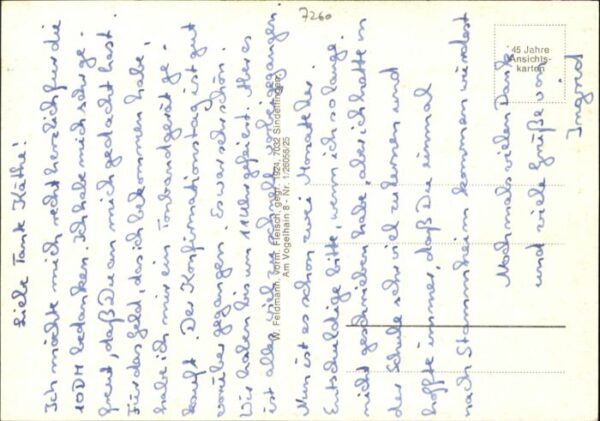 Liebe Tante Käthe!
Ich möchte mich recht herzlich für die
10 DM bedanken. Ich habe mich sehr ge-
freut, daß Du an mich gedacht hast.
Für das Geld, das ich bekommen habe,
habe ich mir ein Tonbandgerät ge-
kauft. Der Konfirmationstag ist gut
vorüber gegangen. Es war sehr schön.
Wir haben bis um 11 Uhr gefeiert. Aber es
ist alles viel zu schnell vorbei gegangen.
Nun ist es schon zwei Monate her.
Entschuldige bitte, wenn ich so lange
nicht geschrieben habe, aber ich hatte in
der Schule sehr viel zu lernen und
hoffte immer, daß Du einmal
nach Stammheim kommen würdest
Nochmals vielen Dank
und viele Grüße von
Ingrid
7260
45 Jahre
Ansichts-
karten
W. Feldmann, vorm. Fleisch, gegr. 1924, 7032 Sindelfingen
Am Vogelhain 8 - Nr. 1/26056/25